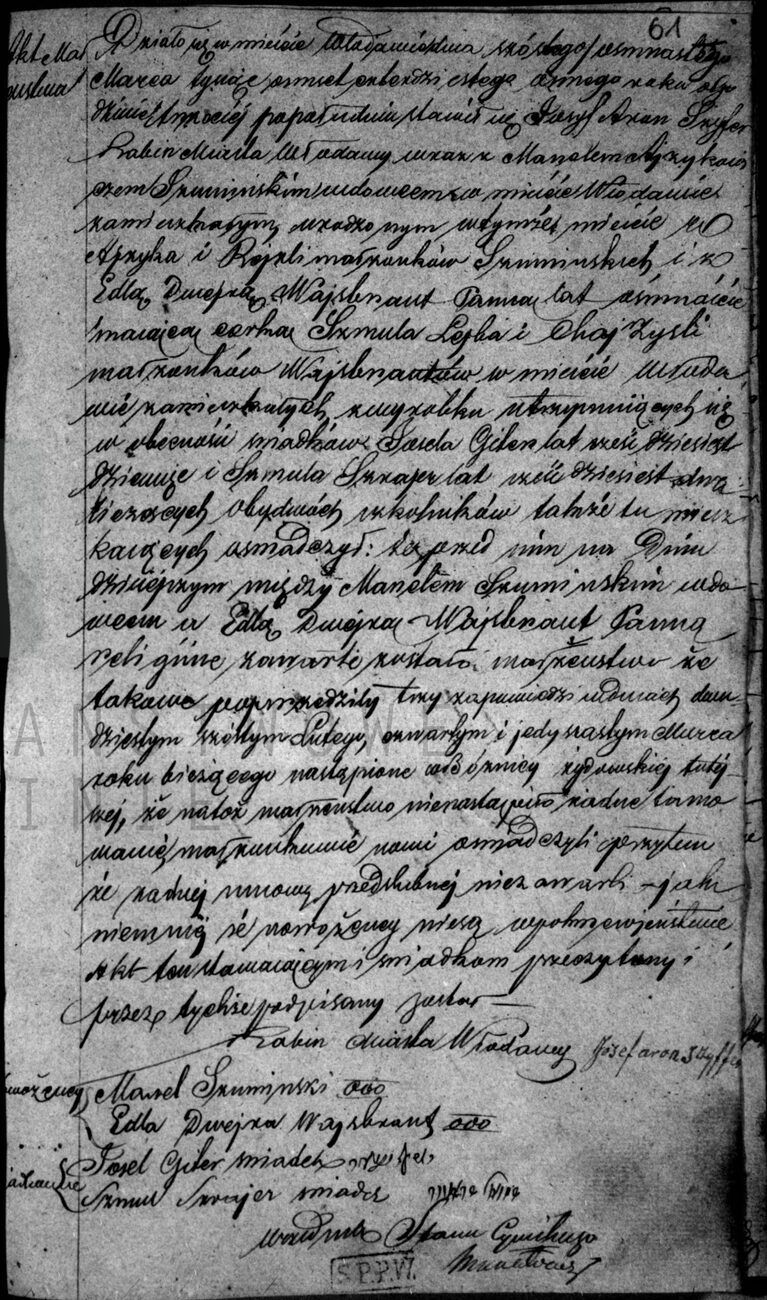 61
Akt Mał
żeństwa
Działo się w mieście Włodawie dnia szóstego/osmnastego
Marca tysiąc osmset czterdziestego osmego roku o go
dzinie trzeciej popołudniu stawił się Josyf Aron Szyfer
Rabin Miasta Włodawy wraz z Manelem Ajzykowi
czem Szumińskim wdowcem w mieście Włodawie
zamieszkałym, urodzonym w tymże mieście z
Ajzyka i Rejzli małżonków Szuminskich i z
Edlą Dwejrą Wajsbraut Panną lat ośmnaście
mającą córką Szmula Lejba i Chaj Zysli
małżonków Wajsbrautów w mieście Włoda
wie zamieszkałych, z wyrobku utrzymujących się
w obecności świadków Josela Giler lat sześćdziesiąt
dziewięć i Szmula Szrajer lat sześćdziesiąt dwa
liczących obydwóch szkolników także tu miesz
kających oświadczył: że przed nim na Dniu
dzisiejszym między Manelem Szuminskim wdo
wcem a Edlą Dwejrą Wajsbraut Panną
religijne zawarte zostało małżeństwo że
takowe poprzedziły trzy zapowiedzi w dniach dwu-
dziestym szóstym Lutego, czwartym i jedynastym Marca
roku bieżącego nastąpione w Bóżnicy żydowskiej tutej
szej, że na toż małżeństwo nie nastąpiło żadne tamo
wanie, małżonkowie nowi oświadczyli przytem
że żadnej umowy przedślubnej nie zawarli – jak
niemniej że nowożeńcy nie są w pokrewieństwie
Akt ten stawającym i świadkom przeczytany i
przez tychże podpisany został –
Rabin Miasta Włodawy Josef aron Szyffer
Nowożeńcy
Manel Szuminski ooo
Edla Dwejra Wajsbraut ooo
Josel Giler świadek
Szmul Szrajer świadek
Urzędnik Stanu Cywilnego
S.P.P.W.